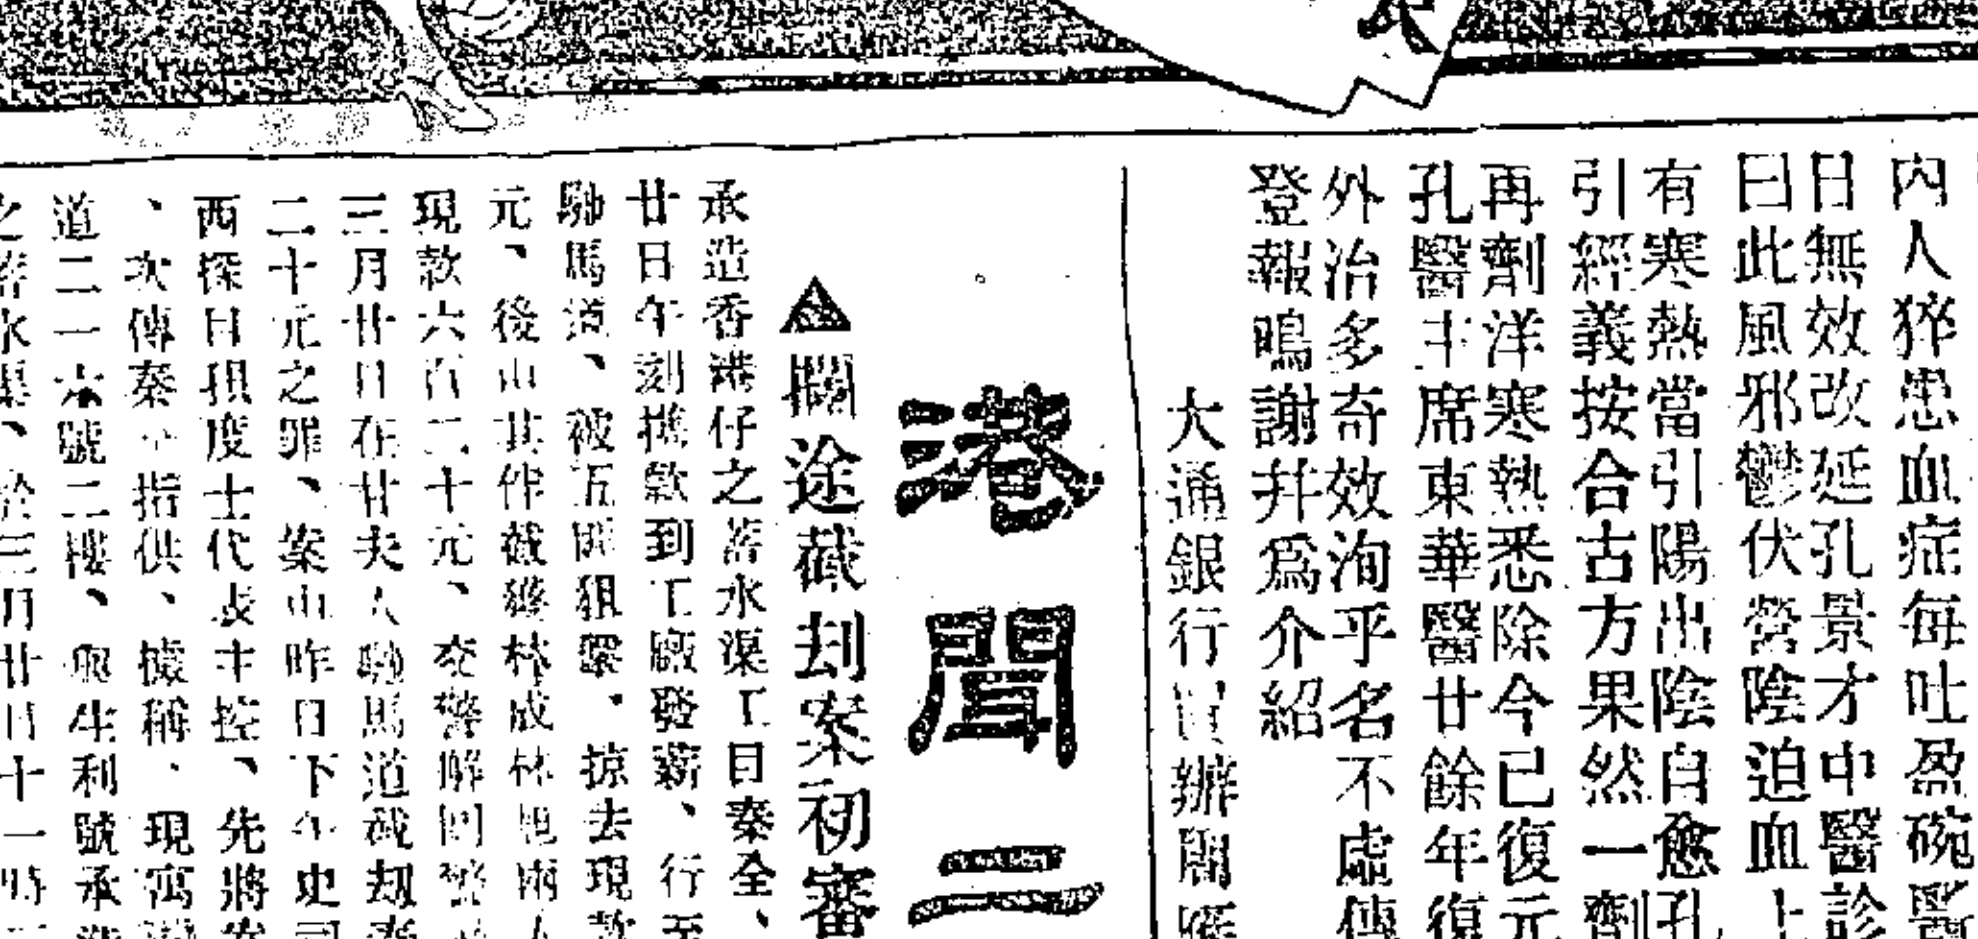 內人猝患血症每吐盈碗醫
日無效改延孔景才中醫診
曰此風邪鬱伏營陰迫血上
有寒熱當引陽出陰自愈孔
引經義按合古方果然一劑
再劑洋寒熱悉除今已復元
孔醫主席東華醫廿餘年復
外治多奇效洵乎名不虛傳
登報鳴謝并爲介紹
大通銀行買辦關
港聞二
▲攔途截刦案初審
承造香港仔之蓄水渠工目秦全、
廿日午刻携款到工廠發薪、行至
馳馬道、被五匪狙擊、掠去現款
元、後由其伴截獲林成林旭兩人
現款六百二十元、交警解回警
三月廿日在廿夫人馳馬道截刦秦
二十元之罪、案由昨日下午史司
西探目狙度士代表主控、先將案
、次傳秦全指供、據稱、現寓灣
道二一六號二樓、與生利號承造
之蓄水渠、於三月廿日十一時